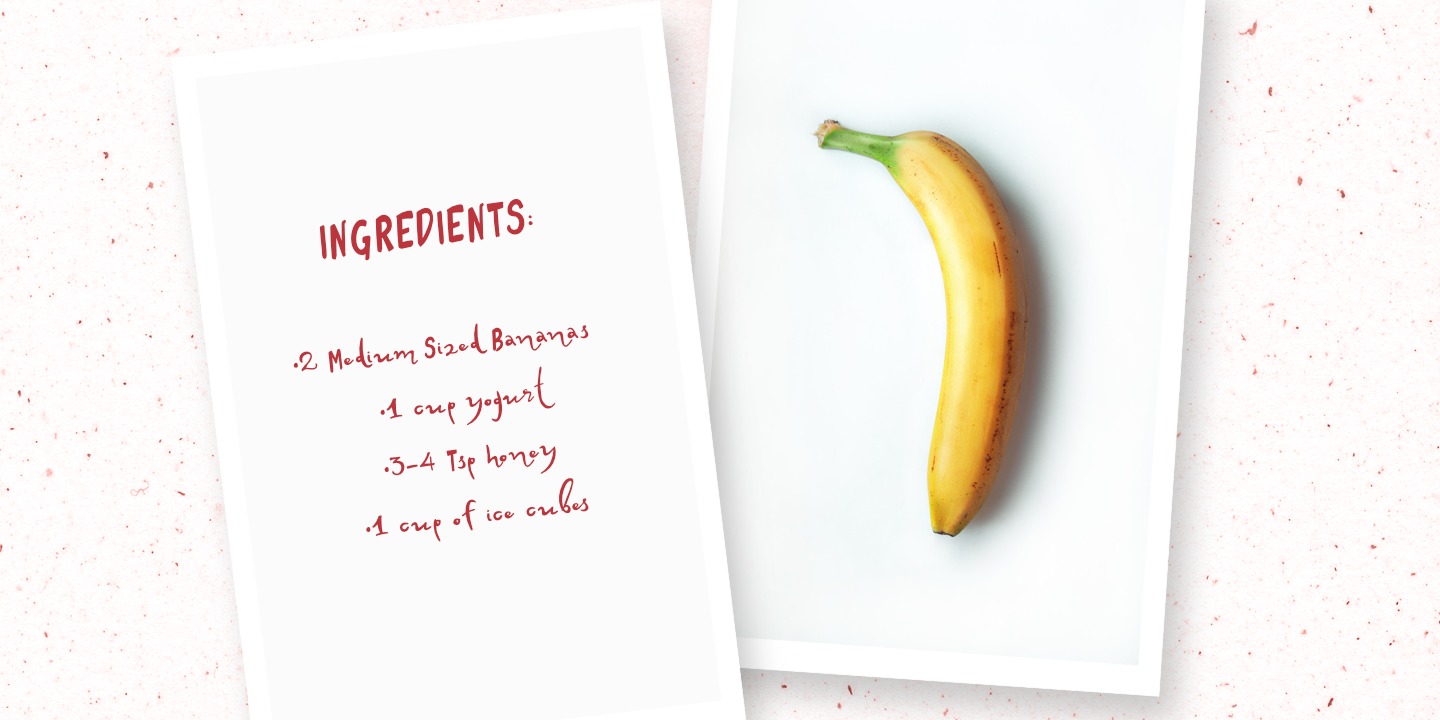 INGREDIENTS:
.2 Medium Sized Bananas
.1 cup yogurt
.3-4 Tsp honey
.1 cup of ice cubes